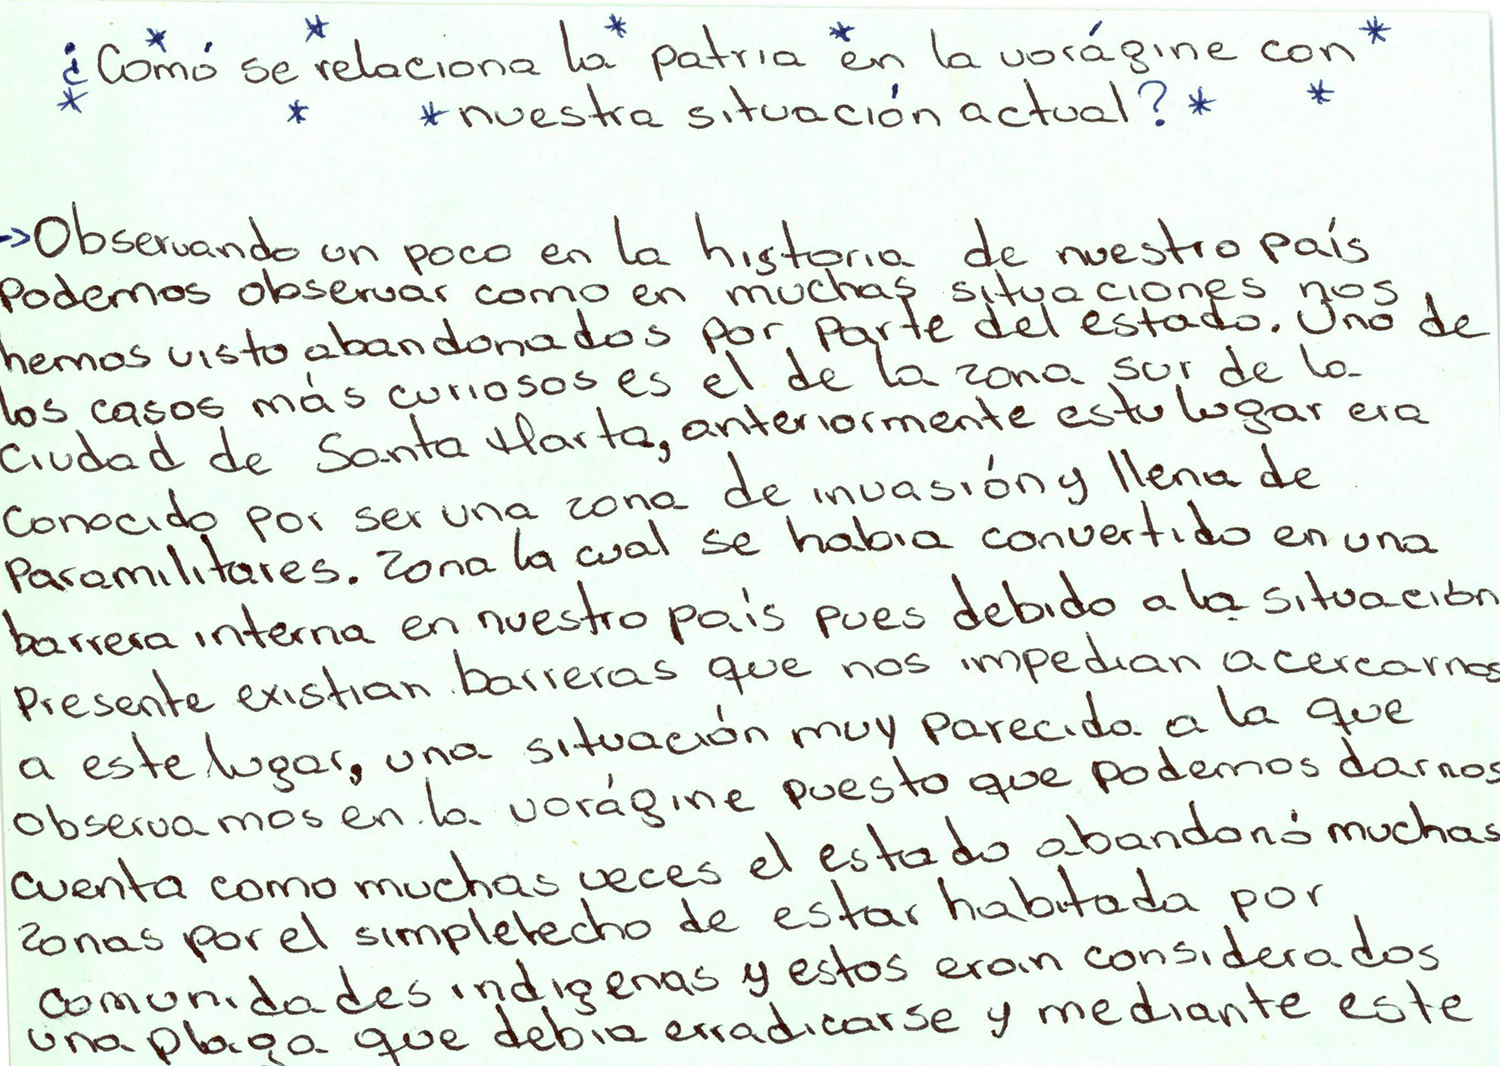 ¿Comó se relaciona la patria en la vorágine con
nuestra situación actual?
→Observando un poco en la historia de nuestro país
Podemos observar como en muchas situaciones nos
hemos visto abandonados por parte del estado. Uno de
los casos más curiosos es el de la zona sur de la
Ciudad de Santa Marta, anteriormente este lugar era
Conocido por ser una zona de invasión y llena de
Paramilitares. Zona la cual se habia convertido en una
barrera interna en nuestro país pues debido a la situación
Presente existian barreras que nos impedian acercarnos
a este lugar, una situación muy parecida a la que
observamos en la vorágine puesto que podemos darnos
cuenta como muchas veces el estado abandonó muchas
zonas por el simple hecho de estar habitada por
comunidades indigenas y estos eran considerados
una plaga que debia erradicarse y mediante este